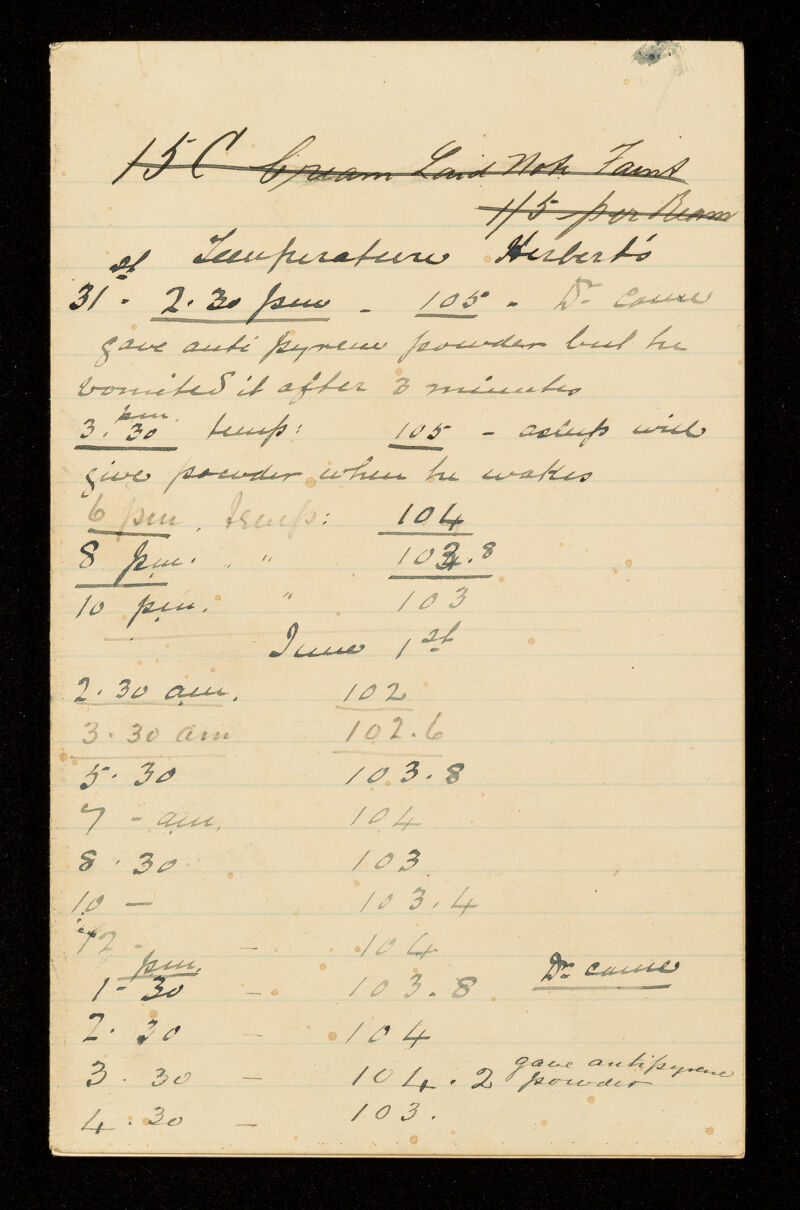 15 C Cream Laid Note Faint
1/5 per Ream
Temperature Herbert's
31st - 2.30 pm - 105 - Dr came
gave anti pyrene powder but he
vomited it after 3 minutes
3.30 pm temp: 105 - asleep will
give powder when he wakes
6 pm. Temp: 104
8 pm. " " 103.8
10 pm. " 103
June 1st
2.30 am. 102
3.30 am 102.6
5.30 103.8
7 - am. 104
8.30 103
10 - 103.4
12 - - 104
pm.
1-30 - 103.8 Dr came
2.30 - 104
3.30 - 104.2 gave antipyrene powder
4.30 - 103.